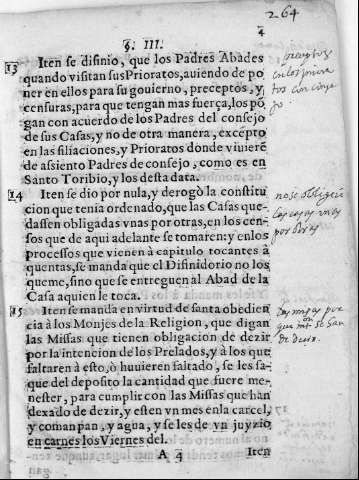 264
4
§. III.
13 Iten se difinio, que los Padres Abades
quando visitan sus Prioratos, auiendo de po
ner en ellos para su gouierno, preceptos, y
censuras, para que tengan mas fuerça, los pō
gan con acuerdo de los Padres del consejo
de sus Casas, y no de otra manera, excepto
en las filiaciones, y Prioratos donde viuierē
de assiento Padres de consejo, como es en
Santo Toribio, y los desta data.
14 Iten se dio por nula, y derogò la constitu
cion que tenia ordenado, que las Casas que-
dassen obligadas vnas por otras, en los cen-
sos que de aqui adelante se tomaren; y en los
processos que vienen à capitulo tocantes à
quentas, se manda que el Difinidorio no los
queme, sino que se entreguen al Abad de la
Casa a quien le toca.
15 Iten se manda en virtud de santa obedien
cia à los Monjes de la Religion, que digan
las Missas que tienen obligacion de dezir
por la intencion de los Prelados, y à los que
faltaren à esto, ò huuieren faltado, se les sa-
que del deposito la cantidad que fuere me-
nester, para cumplir con las Missas que han
dexado de dezir, y esten vn mes en la carcel,
y coman pan, y agua, y se les dè vn juyzio
en carnes los Viernes del.
A 4 Iten
preceptos
en los priora
tos con conse
jo.
no se obliguē
las casas vnas
por otras